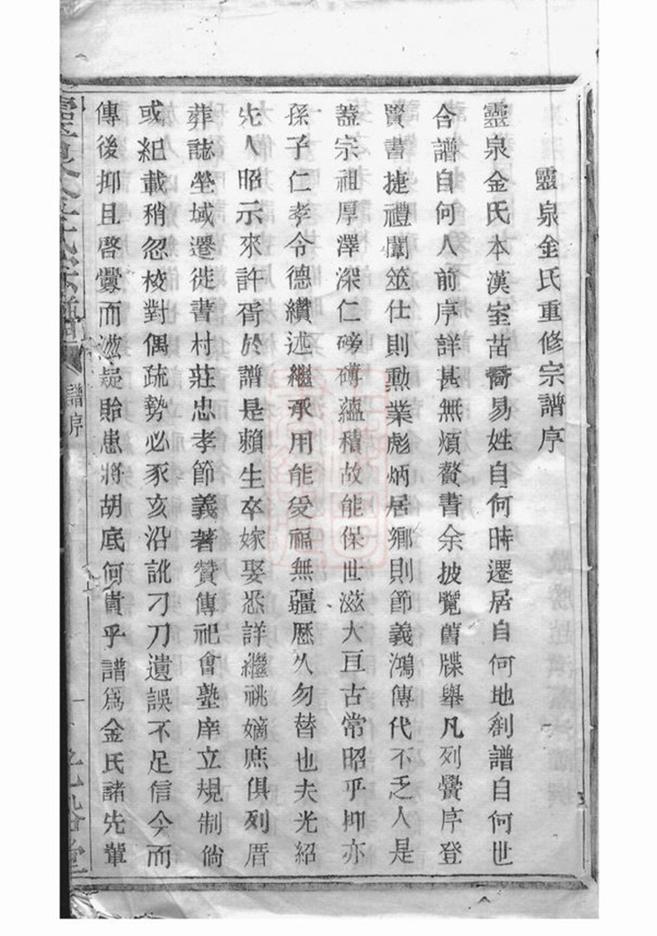 靈泉金氏重修宗譜序
靈泉金氏本漢室苗裔易姓自何時遷居自何地創譜自何世
合譜自何人前序詳甚無煩贅書余披覽舊牒舉凡列黌序登
賢書捷禮闈筮仕則勲業彪炳居鄉則節義鴻傳代不乏人是
蓋宗祖厚澤深仁磅礡蘊積故能保世滋大亘古常昭乎抑亦
孫子仁孝令德纘述繼承用能受福無疆歷久勿替也夫光紹
先人昭示來許胥於譜是賴生卒嫁娶悉詳繼祧嫡庶俱列厝
葬誌塋域遷徙書村莊忠孝節義著贊傳祀會塾庠立規制倘
或紀載稍忽校對偶疏勢必豕亥沿訛刁刀遺誤不足信今而
傳後抑且啓釁而滋疑貽患將胡底何貴乎譜爲金氏諸先輩
靈泉金氏宗譜
譜序
一